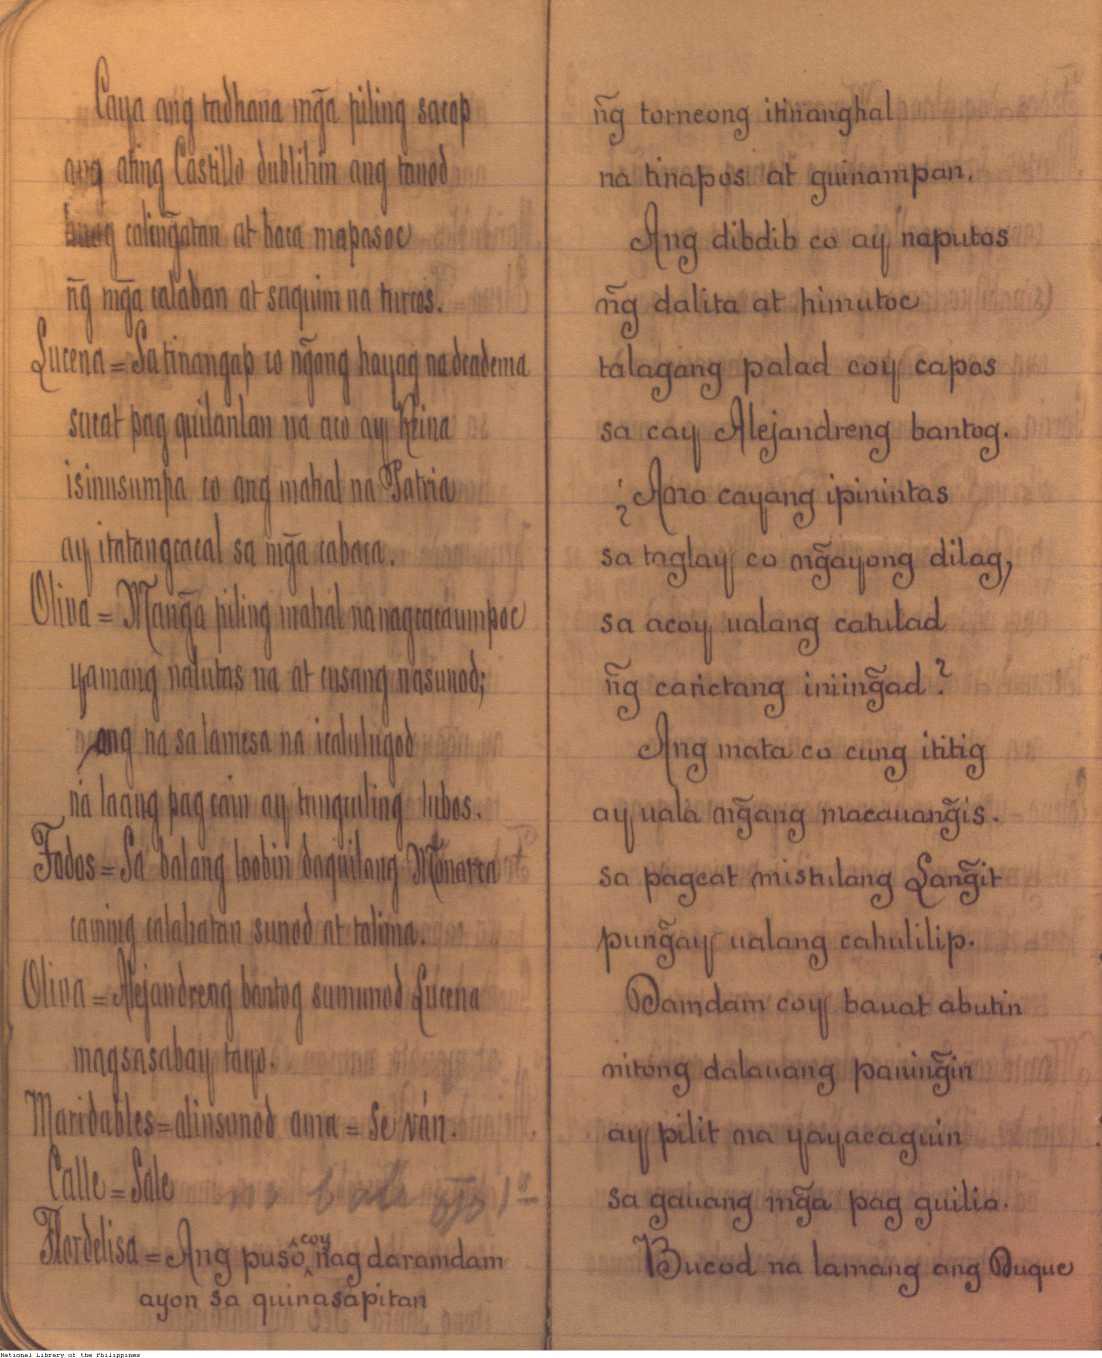 Caya ang tadhana mg̃a piling sacop
ang ating Castillo dublihin ang tanod
caling̃atan at baca mapasoc
n̄g mg̃a calaban at saquim na turcos.
Lucena = Sa tinangap co ng̃ang hayag na deadema
sucat pag quilanlan na aco ay Reina
isinusumpa co ang mahal na Patria
ay itatangcacal sa mg̃a cabaca.
Oliva = Mang̃a piling mahal na nagcacaumpoc
yamang nalutas na at cusang nasunod;
ang na sa lamesa na icalulugod
na laang pag cain ay tunguiling lubos.
Todos = Sa balang loobin daquilang Monarca
caming calahatan sunod at talima.
Oliva = Alejandreng bantog sumunod Lucena
magsasabay tayo.
Maridables = alinsunod ama = Se ván.
Calle = Sale
no bale ojo 1º
Flordelisa = Ang puso coy nag daramdam
ayon sa quinasapitan
n̄g torneong itinanghal
na tinapos at guinampan.
Ang dibdib co ay naputos
n̄g dalita at himutoc
talagang palad coy capos
sa cay Alejandreng bantog.
¿Ano cayang ipinintas
sa taglay co ng̃ayong dilag,
sa acoy ualang catulad
n̄g carictang iniing̃ad?
Ang mata co cung ititig
ay uala ng̃ang macauang̃is.
sa pagcat mistulang Lang̃it
pung̃ay ualang cahulilip.
Damdam coy bauat abutin
nitong dalauang paning̃in
ay pilit na yayacaguin
sa gauang mg̃a pag guilio.
Bucod na lamang ang Duque
National Library of the Philippines